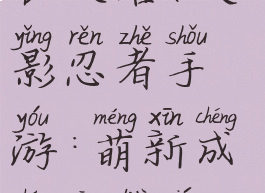 yǐng rěn zhě shǒu
影忍者手
yóu méng xīn chéng
游：萌新成